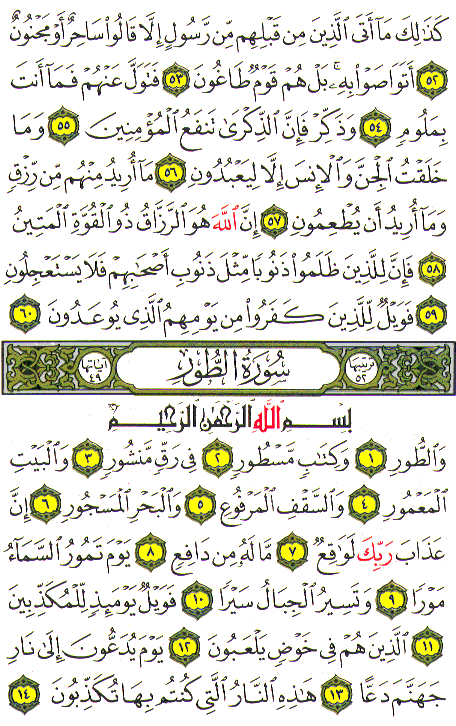 كَذَٰلِكَ مَآ أَتَى ٱلَّذِينَ مِن قَبۡلِهِم مِّن رَّسُولٍ إِلَّا قَالُواْ سَاحِرٌ أَوۡ مَجۡنُونٌ
٥٢ أَتَوَاصَوۡاْ بِهِۦۚ بَلۡ هُمۡ قَوۡمٌ طَاغُونَ ٥٣ فَتَوَلَّ عَنۡهُمۡ فَمَآ أَنتَ
بِمَلُومٍ ٥٤ وَذَكِّرۡ فَإِنَّ ٱلذِّكۡرَىٰ تَنفَعُ ٱلۡمُؤۡمِنِينَ ٥٥ وَمَا
خَلَقۡتُ ٱلۡجِنَّ وَٱلۡإِنسَ إِلَّا لِيَعۡبُدُونِ ٥٦ مَآ أُرِيدُ مِنۡهُم مِّن رِّزۡقٍ
وَمَآ أُرِيدُ أَن يُطۡعِمُونِ ٥٧ إِنَّ ٱللَّهَ هُوَ ٱلرَّزَّاقُ ذُو ٱلۡقُوَّةِ ٱلۡمَتِينُ
٥٨ فَإِنَّ لِلَّذِينَ ظَلَمُواْ ذَنُوبًا مِّثۡلَ ذَنُوبِ أَصۡحَٰبِهِمۡ فَلَا يَسۡتَعۡجِلُونِ
٥٩ فَوَيۡلٌ لِّلَّذِينَ كَفَرُواْ مِن يَوۡمِهِمُ ٱلَّذِى يُوعَدُونَ ٦٠
ترتيبها ٥٢ سُورَةُ الطُّورِ آياتها ٤٩
بِسۡمِ ٱللَّهِ ٱلرَّحۡمَٰنِ ٱلرَّحِيمِ
وَٱلطُّورِ ١ وَكِتَٰبٍ مَّسۡطُورٍ ٢ فِى رَقٍّ مَّنشُورٍ ٣ وَٱلۡبَيۡتِ
ٱلۡمَعۡمُورِ ٤ وَٱلسَّقۡفِ ٱلۡمَرۡفُوعِ ٥ وَٱلۡبَحۡرِ ٱلۡمَسۡجُورِ ٦ إِنَّ
عَذَابَ رَبِّكَ لَوَٰقِعٌ ٧ مَّا لَهُۥ مِن دَافِعٍ ٨ يَوۡمَ تَمُورُ ٱلسَّمَآءُ
مَوۡرًا ٩ وَتَسِيرُ ٱلۡجِبَالُ سَيۡرًا ١٠ فَوَيۡلٌ يَوۡمَئِذٍ لِّلۡمُكَذِّبِينَ
١١ ٱلَّذِينَ هُمۡ فِى خَوۡضٍ يَلۡعَبُونَ ١٢ يَوۡمَ يُدَعُّونَ إِلَىٰ نَارِ
جَهَنَّمَ دَعًّا ١٣ هَٰذِهِ ٱلنَّارُ ٱلَّتِى كُنتُم بِهَا تُكَذِّبُونَ ١٤